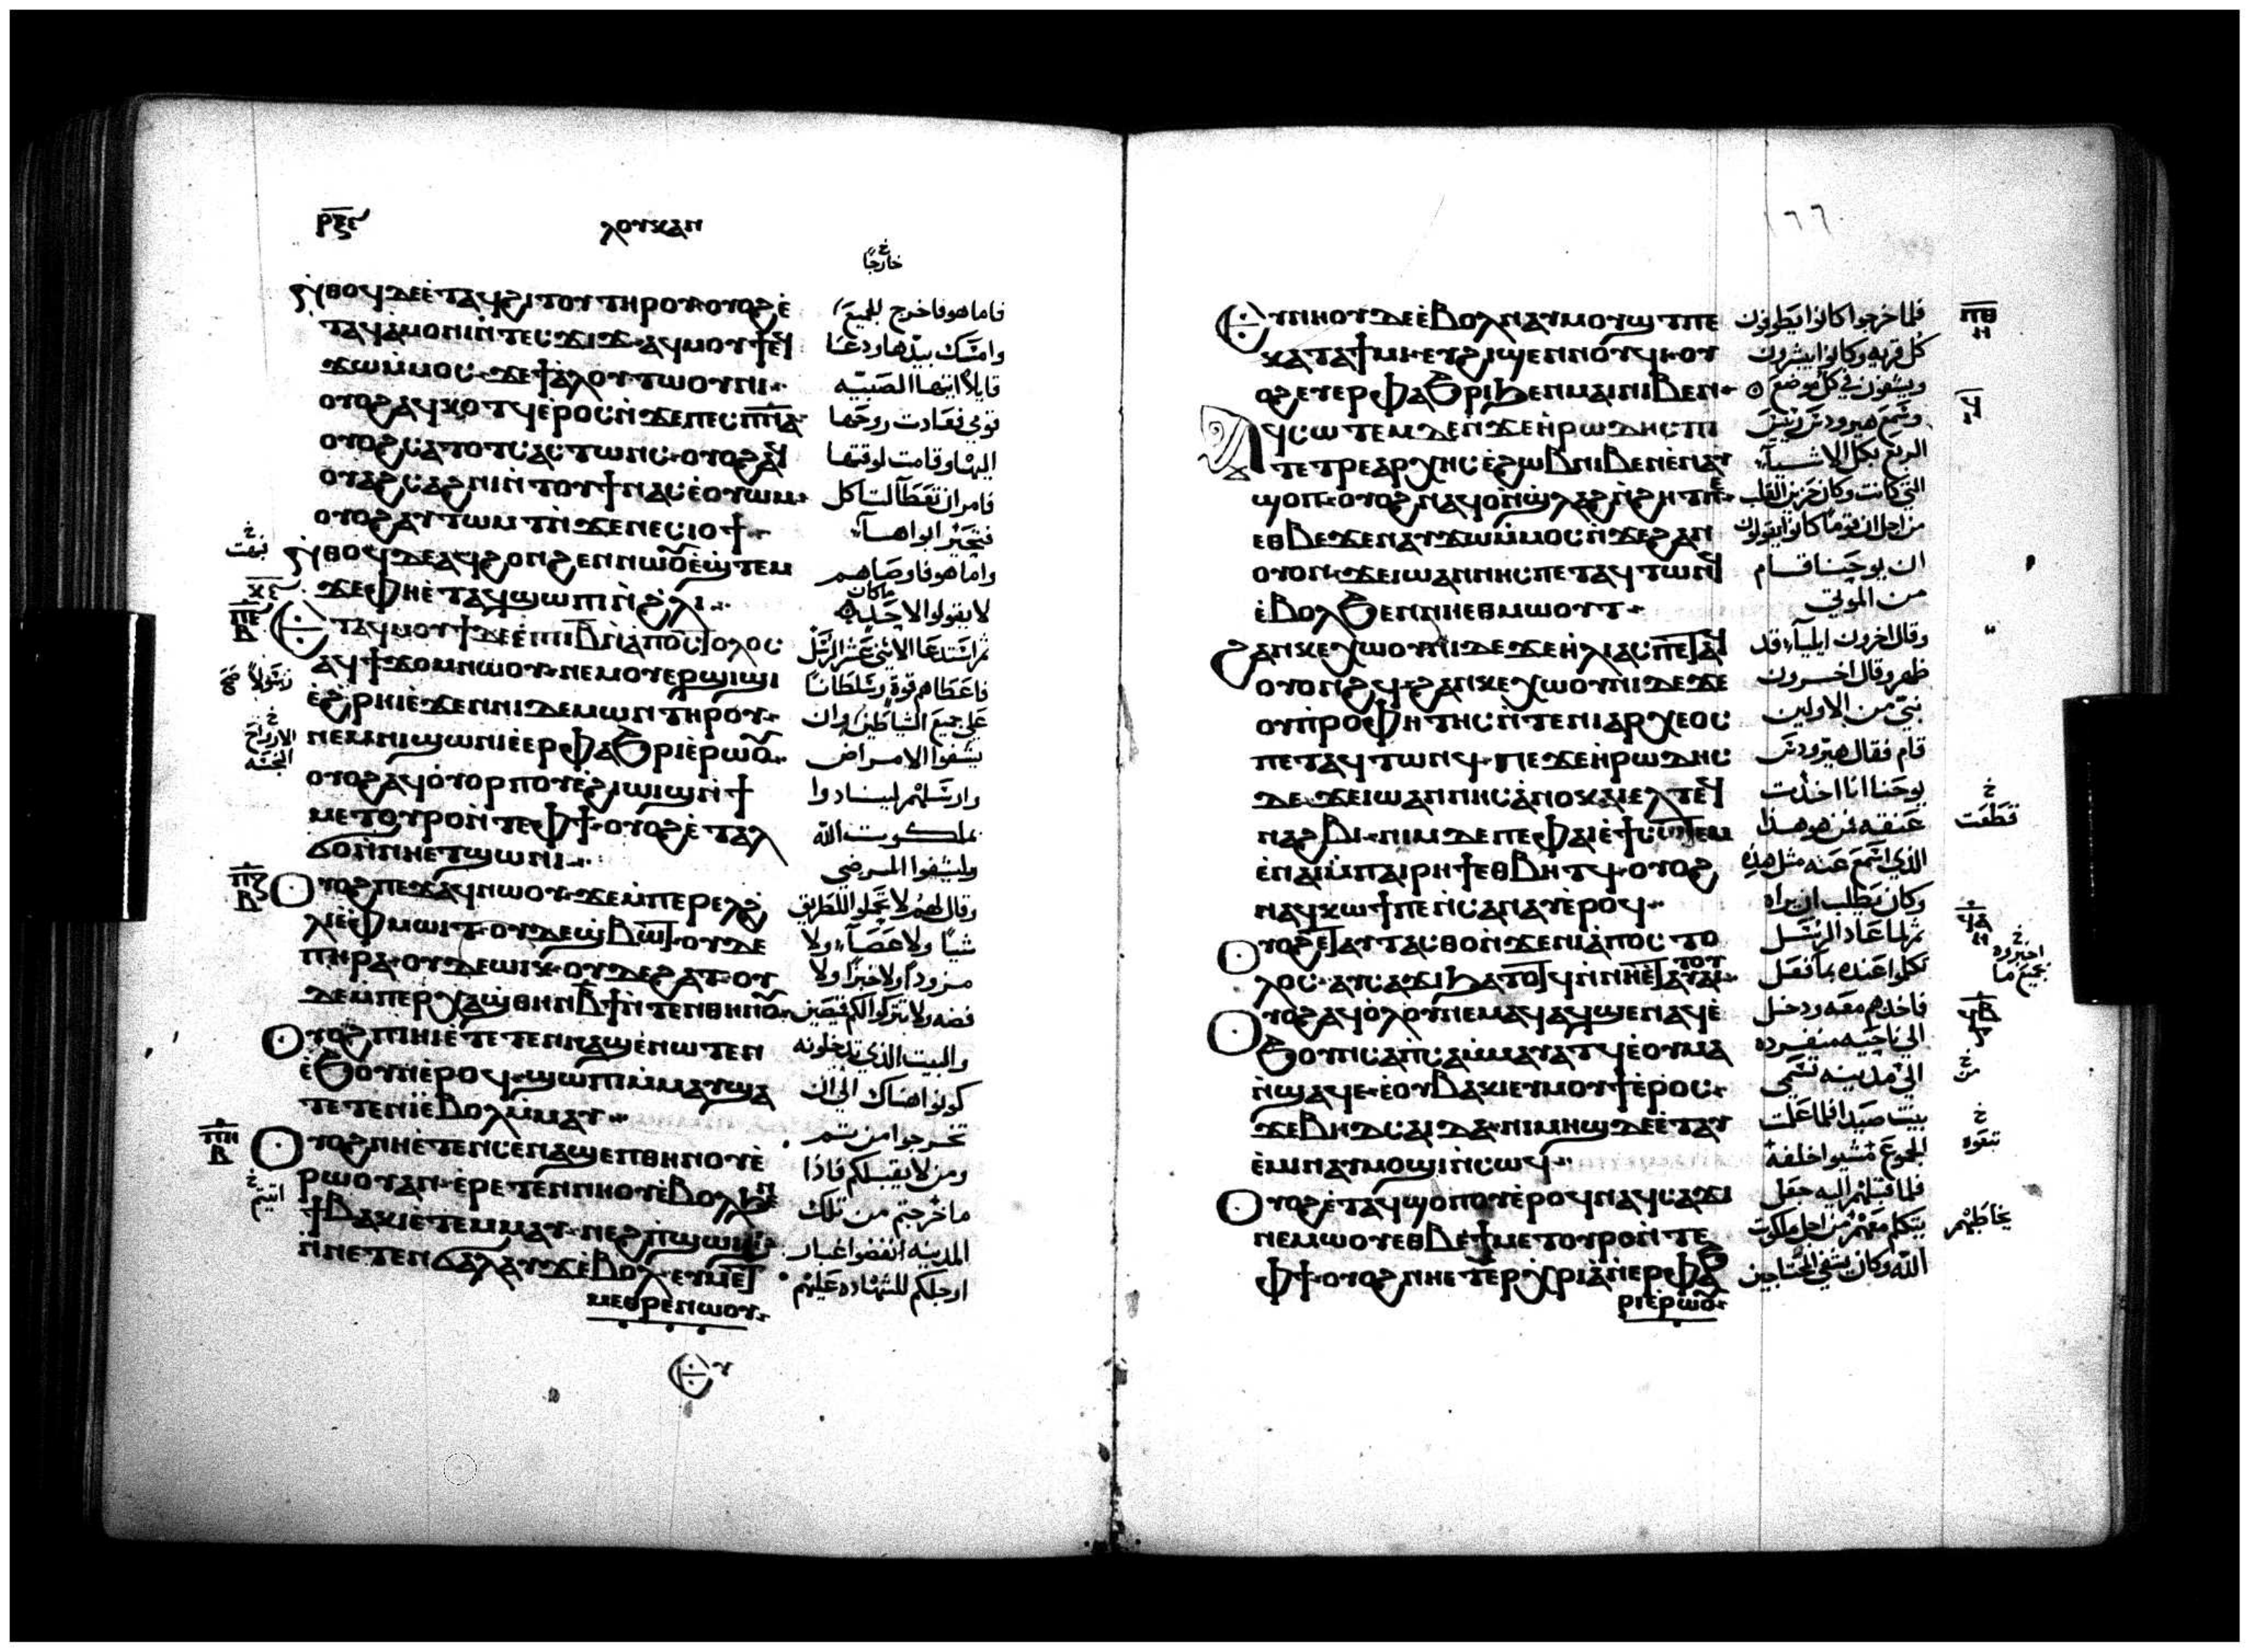 ⲣⲝⲋ
ⲗⲟⲩⲕⲁⲛ
خارجًا
ⲛ̀ⲑⲟϥ ⲇⲉ ⲉ̀ⲧⲁϥϩⲓⲧⲟⲩ ⲧⲏⲣⲟⲩ ⲟⲩⲟϩ ⲉ̀
ⲧⲁϥⲁ̀ⲙⲟⲛⲓ ⲛ̀ⲧⲉⲥϫⲓϫ ⲁϥⲙⲟⲩϯ ⲉϥ
ϫⲱⲙ̀ⲙⲟⲥ ϫⲉ ϯⲁ̀ⲗⲟⲩ ⲧⲱⲟⲩⲛⲓ
ⲟⲩⲟϩ ⲁϥⲕⲟⲧϥ ⲉ̀ⲣⲟⲥ ⲛ̀ϫⲉ ⲡⲉⲥⲡⲛⲁ
ⲟⲩⲟϩ ⲥⲁⲧⲟⲧⲥ ⲁⲥⲧⲱⲛⲥ ⲟⲩⲟϩ ⲁϥ
ⲟⲩⲁϩⲥⲁϩⲛⲓ ⲛ̀ⲧⲟⲩϯ ⲛⲁⲥ ⲉ̀ⲟⲩⲱⲙ
ⲟⲩⲟϩ ⲁⲩⲧⲱⲙⲧ ⲛ̀ϫⲉ ⲛⲉⲥⲓⲟϯ
ⲛ̀ⲑⲟϥ ⲇⲉ ⲁϥϩⲟⲛϩⲉⲛ ⲛⲱⲟⲩ ⲉ̀ϣⲧⲉⲙ
ϫⲉ ⲫⲏⲉ̀ⲧⲁϥϣⲱⲡⲓ ⲛ̀ϩⲗⲓ
ⲉⲧⲁϥⲙⲟⲩϯ ⲇⲉ ⲉ̀ⲡⲓⲓⲃ ⲛ̀ⲁ̀ⲡⲟⲥⲧⲟⲗⲟⲥ
ⲁϥϯϫⲟⲙ ⲛⲱⲟⲩ ⲛⲉⲙ ⲟⲩⲉⲣϣⲓϣⲓ
ⲉ̀ϩⲣⲏⲓ ⲉ̀ϫⲉⲛ ⲛⲓⲇⲉⲙⲱⲛ ⲧⲏⲣⲟⲩ
ⲛⲉⲙ ⲛⲓϣⲱⲛⲓ ⲉ̀ⲉⲣⲫⲁϧⲣⲓ ⲉ̀ⲣⲱⲟⲩ
ⲟⲩⲟϩ ⲁϥⲟ̀ⲩⲟⲣⲡⲟⲩ ⲉ̀ϩⲓⲱⲓϣ ⲛ̀ϯ
ⲙⲉⲧⲟⲩⲣⲟ ⲛ̀ⲧⲉ ⲫϯ ⲟⲩⲟϩ ⲉ̀ⲧⲁⲗ
ϭⲟ ⲛ̀ⲛⲏⲉⲧϣⲱⲛⲓ
ⲟⲩⲟϩ ⲡⲉϫⲁϥ ⲛⲱⲟⲩ ϫⲉ ⲙ̀ⲡⲉⲣⲉⲗϩ̀
ⲗⲓ ⲉ̀ⲫⲙⲱⲓⲧ ⲟⲩⲇⲉ ϣⲃⲱⲧ ⲟⲩⲇⲉ
ⲡⲏⲣⲁ ⲟⲩⲇⲉ ⲱⲓⲕ ⲟⲩⲇⲉ ϩⲁⲧ ⲟⲩ
ⲇⲉ ⲙ̀ⲡⲉⲣⲭⲁ ϣ̀ⲑⲏⲛ ⲃϯ ⲛ̀ⲧⲉⲛ ⲑⲏⲛⲟⲩ
ⲟⲩⲟϩ ⲡⲓⲏⲓ ⲉ̀ⲧⲉⲧⲉⲛⲛⲁϣⲉ̀ⲛⲱⲧⲉⲛ
ⲉ̀ϧⲟⲩⲛ ⲉ̀ⲣⲟϥ ϣⲱⲡⲓ ⲙ̀ⲙⲁⲩ ϣⲁ
ⲧⲉⲧⲉⲛⲓ̀ ⲉ̀ⲃⲟⲗ ⲙ̀ⲙⲁⲩ
ⲟⲩⲟϩ ⲛⲏⲉ̀ⲧⲉⲛⲥⲉⲛⲁϣⲉⲡ ⲑⲏⲛⲟⲩ ⲉ̀
ⲣⲱⲟⲩ ⲁⲛ ⲉ̀ⲣⲉⲧⲉⲛⲛⲏⲟⲩ ⲉ̀ⲃⲟⲗ ϧⲉⲛ
ϯⲃⲁⲕⲓ ⲉ̀ⲧⲉⲙⲙⲁⲩ ⲛⲉϩ ⲡ̀ϣⲱⲓϣ
ⲛ̀ⲛⲉⲧⲉⲛϭⲁⲗⲁⲩϫ ⲉ̀ⲃⲟⲗ ⲉⲩⲙⲉⲧ
ⲙⲉⲑⲣⲉ ⲛⲱⲟⲩ
ⲉⲩ
فاما هو فاخرج للجميع
وامسك بيدها ودعا
قايلا ايتها الصبيه
قومي فعادت روحها
اليها وقامت لوقتها
فامر ان تعطا لتاكل
فتحير ابواها
واما هو فاوصاهم
لا يقولوا لاحد ما كان
ثم استدعا الاثني عشر الرسل
فاعطاهم قوة وسلطانا
على جميع الشياطين وان
يشفوا الامراض
وارسلهم لينادوا
بملكوت الله
وليشفوا المرضي
وقال لهم لا تحملوا للطريق
شيا ولا عصا ولا
مزودا ولا خبزا ولا
فضه ولا يتركوا لكم قميصين
والبيت الذي تدخلونه
كونوا هناك الى ان
تخرجوا من ثم
ومن لا يقبلكم فاذا
ما خرجتم من تلك
المدينه انفضوا غبار
ارجلكم للشهاده عليهم
ⲡⲉ
ⲃ
ⲡⲍ
ⲃ
ⲡⲏ
ⲃ
الارواح
النجسه
١٦٦
ⲉⲩⲛⲏⲟⲩ ⲇⲉ ⲉ̀ⲃⲟⲗ ⲛⲁⲩⲙⲟⲩϣⲧ ⲡⲉ
ⲕⲁⲧⲁ ϯⲙⲓ ⲉⲩϩⲓϣⲉⲛⲛⲟⲩϥⲓ ⲟⲩ
ⲟϩ ⲉⲩⲉⲣⲫⲁϧⲣⲓ ϧⲉⲛ ⲙⲁⲓ ⲛⲓⲃⲉⲛ
ⲁϥⲥⲱⲧⲉⲙ ⲇⲉ ⲛ̀ϫⲉ ⲏ̀ⲣⲱⲇⲏⲥ ⲡⲓ
ⲧⲉⲧⲣⲉⲁⲣⲭⲏⲥ ⲉ̀ϩⲱⲃ ⲛⲓⲃⲉⲛ ⲉ̀ⲛⲁⲩ
ϣⲟⲡ ⲟⲩⲟϩ ⲛⲁϥⲟⲓ ⲛ̀ϣⲗⲁϩ ⲛ̀ϩⲏⲧ ⲡⲉ
ⲉⲑⲃⲉ ϫⲉ ⲛⲁⲩϫⲱ ⲙ̀ⲙⲟⲥ ⲛ̀ϫⲉ ϩⲁⲛ
ⲟⲩⲟⲛ ϫⲉ ⲓⲱⲁⲛⲛⲏⲥ ⲡⲉⲧⲁϥⲧⲱⲛϥ
ⲉ̀ⲃⲟⲗ ϧⲉⲛ ⲛⲏⲉⲑⲙⲱⲟⲩⲧ
ϩⲁⲛⲕⲉⲭⲱⲟⲩⲛⲓ ⲇⲉ ϫⲉ ⲏ̀ⲗⲓⲁⲥ ⲡⲉⲧⲁϥ
ⲟⲩⲟⲛϩϥ ϩⲁⲛⲕⲉⲭⲱⲟⲩⲛⲓ ⲇⲉ ϫⲉ
ⲟⲩⲡ̀ⲣⲟⲫⲏⲧⲏⲥ ⲛ̀ⲧⲉ ⲛⲓⲁⲣⲭⲉⲟⲥ
ⲡⲉⲧⲁϥⲧⲱⲛϥ ⲡⲉϫⲉ ⲏ̀ⲣⲱⲇⲏⲥ
ⲇⲉ ϫⲉ ⲓⲱⲁⲛⲛⲏⲥ ⲁ̀ⲛⲟⲕ ⲁⲓⲉⲗ ⲧⲉϥ
ⲛⲁϩⲃⲓ ⲛⲓⲙ ⲇⲉ ⲡⲉ ⲫⲁⲓ ⲉ̀ϯⲥⲱⲧⲉⲙ
ⲉ̀ⲛⲁⲓ ⲙ̀ⲡⲁⲓⲣⲏϯ ⲉⲑⲃⲏⲧϥ ⲟⲩⲟϩ
ⲛⲁϥⲕⲱϯ ⲡⲉ ⲛ̀ⲥⲁ ⲛⲁⲩ ⲉ̀ⲣⲟϥ
ⲟⲩⲟϩ ⲉⲧⲁⲩⲧⲁⲥⲑⲟ ⲛ̀ϫⲉ ⲛⲓⲁ̀ⲡⲟⲥⲧⲟ
ⲗⲟⲥ ⲁⲩⲥⲁϫⲓ ϧⲁⲧⲟⲧϥ ⲛ̀ⲛⲏⲉⲧⲁⲩⲁⲓⲧⲟⲩ
ⲟⲩⲟϩ ⲁϥⲟ̀ⲗⲟⲩ ⲛⲉⲙⲁϥ ⲁϥϣⲉ ⲛⲁϥ ⲉ̀
ϧⲟⲩⲛ ⲥⲁⲡ̀ⲥⲁ ⲙ̀ⲙⲁⲩⲁⲧϥ ⲉ̀ⲟⲩⲙⲁ
ⲛ̀ϣⲁϥⲉ ⲉ̀ⲟⲩⲃⲁⲕⲓ ⲉⲩⲙⲟⲩϯ ⲉ̀ⲣⲟⲥ
ϫⲉ ⲃⲏⲇⲥⲁⲓⲇⲁ ⲛⲓⲙⲏϣ ⲇⲉ ⲉ̀ⲧⲁⲩ
ⲉ̀ⲙⲓ ⲛⲁⲩⲙⲟϣⲓ ⲛ̀ⲥⲱϥ
ⲟⲩⲟϩ ⲉ̀ⲧⲁϥϣⲟⲡⲟⲩ ⲉ̀ⲣⲟϥ ⲛⲁϥⲥⲁϫⲓ
ⲛⲉⲙⲱⲟⲩ ⲉⲑⲃⲉ ϯⲙⲉⲧⲟⲩⲣⲟ ⲛ̀ⲧⲉ
ⲫϯ ⲟⲩⲟϩ ⲛⲏⲉⲧⲉⲣⲭⲣⲓⲁ ⲛ̀ⲉⲣⲫⲁϧ
ⲣⲓ ⲉ̀ⲣⲱⲟⲩ
فلما خرجوا كانوا يطوفون
كل قريه وكانوا يبشرون
ويشفون في كل موضع
وسمع هيرودس رييس
الربع بكل الاشيآ
التي كانت وكان حزين القلب
من اجل ان قوما كانوا يقولون
ان يوحنا قام
من الموتي
وقال اخرون ايليا قد
ظهر وقال اخرون
نبي من الاولين
قام فقال هيرودس
يوحنا انا اخذت
عنقه فمن هو هذا
الذي اسمع عنه مثل هذه
وكان يطلب ان يراه
ثم لما عاد الرسل
تكلموا عنده بما فعل
فاخذهم معه ودخل
الي ناحيه منفرده
الي مدينه تسمى
بيت صيدا فلما علمت
الجموع مشيوا خلفه
فلما قبلهم اليه جعل
يتكلم معهم من اجل ملكوت
الله وكان يشفي المحتاجين
ⲡⲑ
ⲏ
ϥ
ⲏ
قطعت
ϥⲁ
ⲏ
اخبروه
بجميع ما
ϥⲃ
ⲅ
من
تبعوه
يخاطبهم